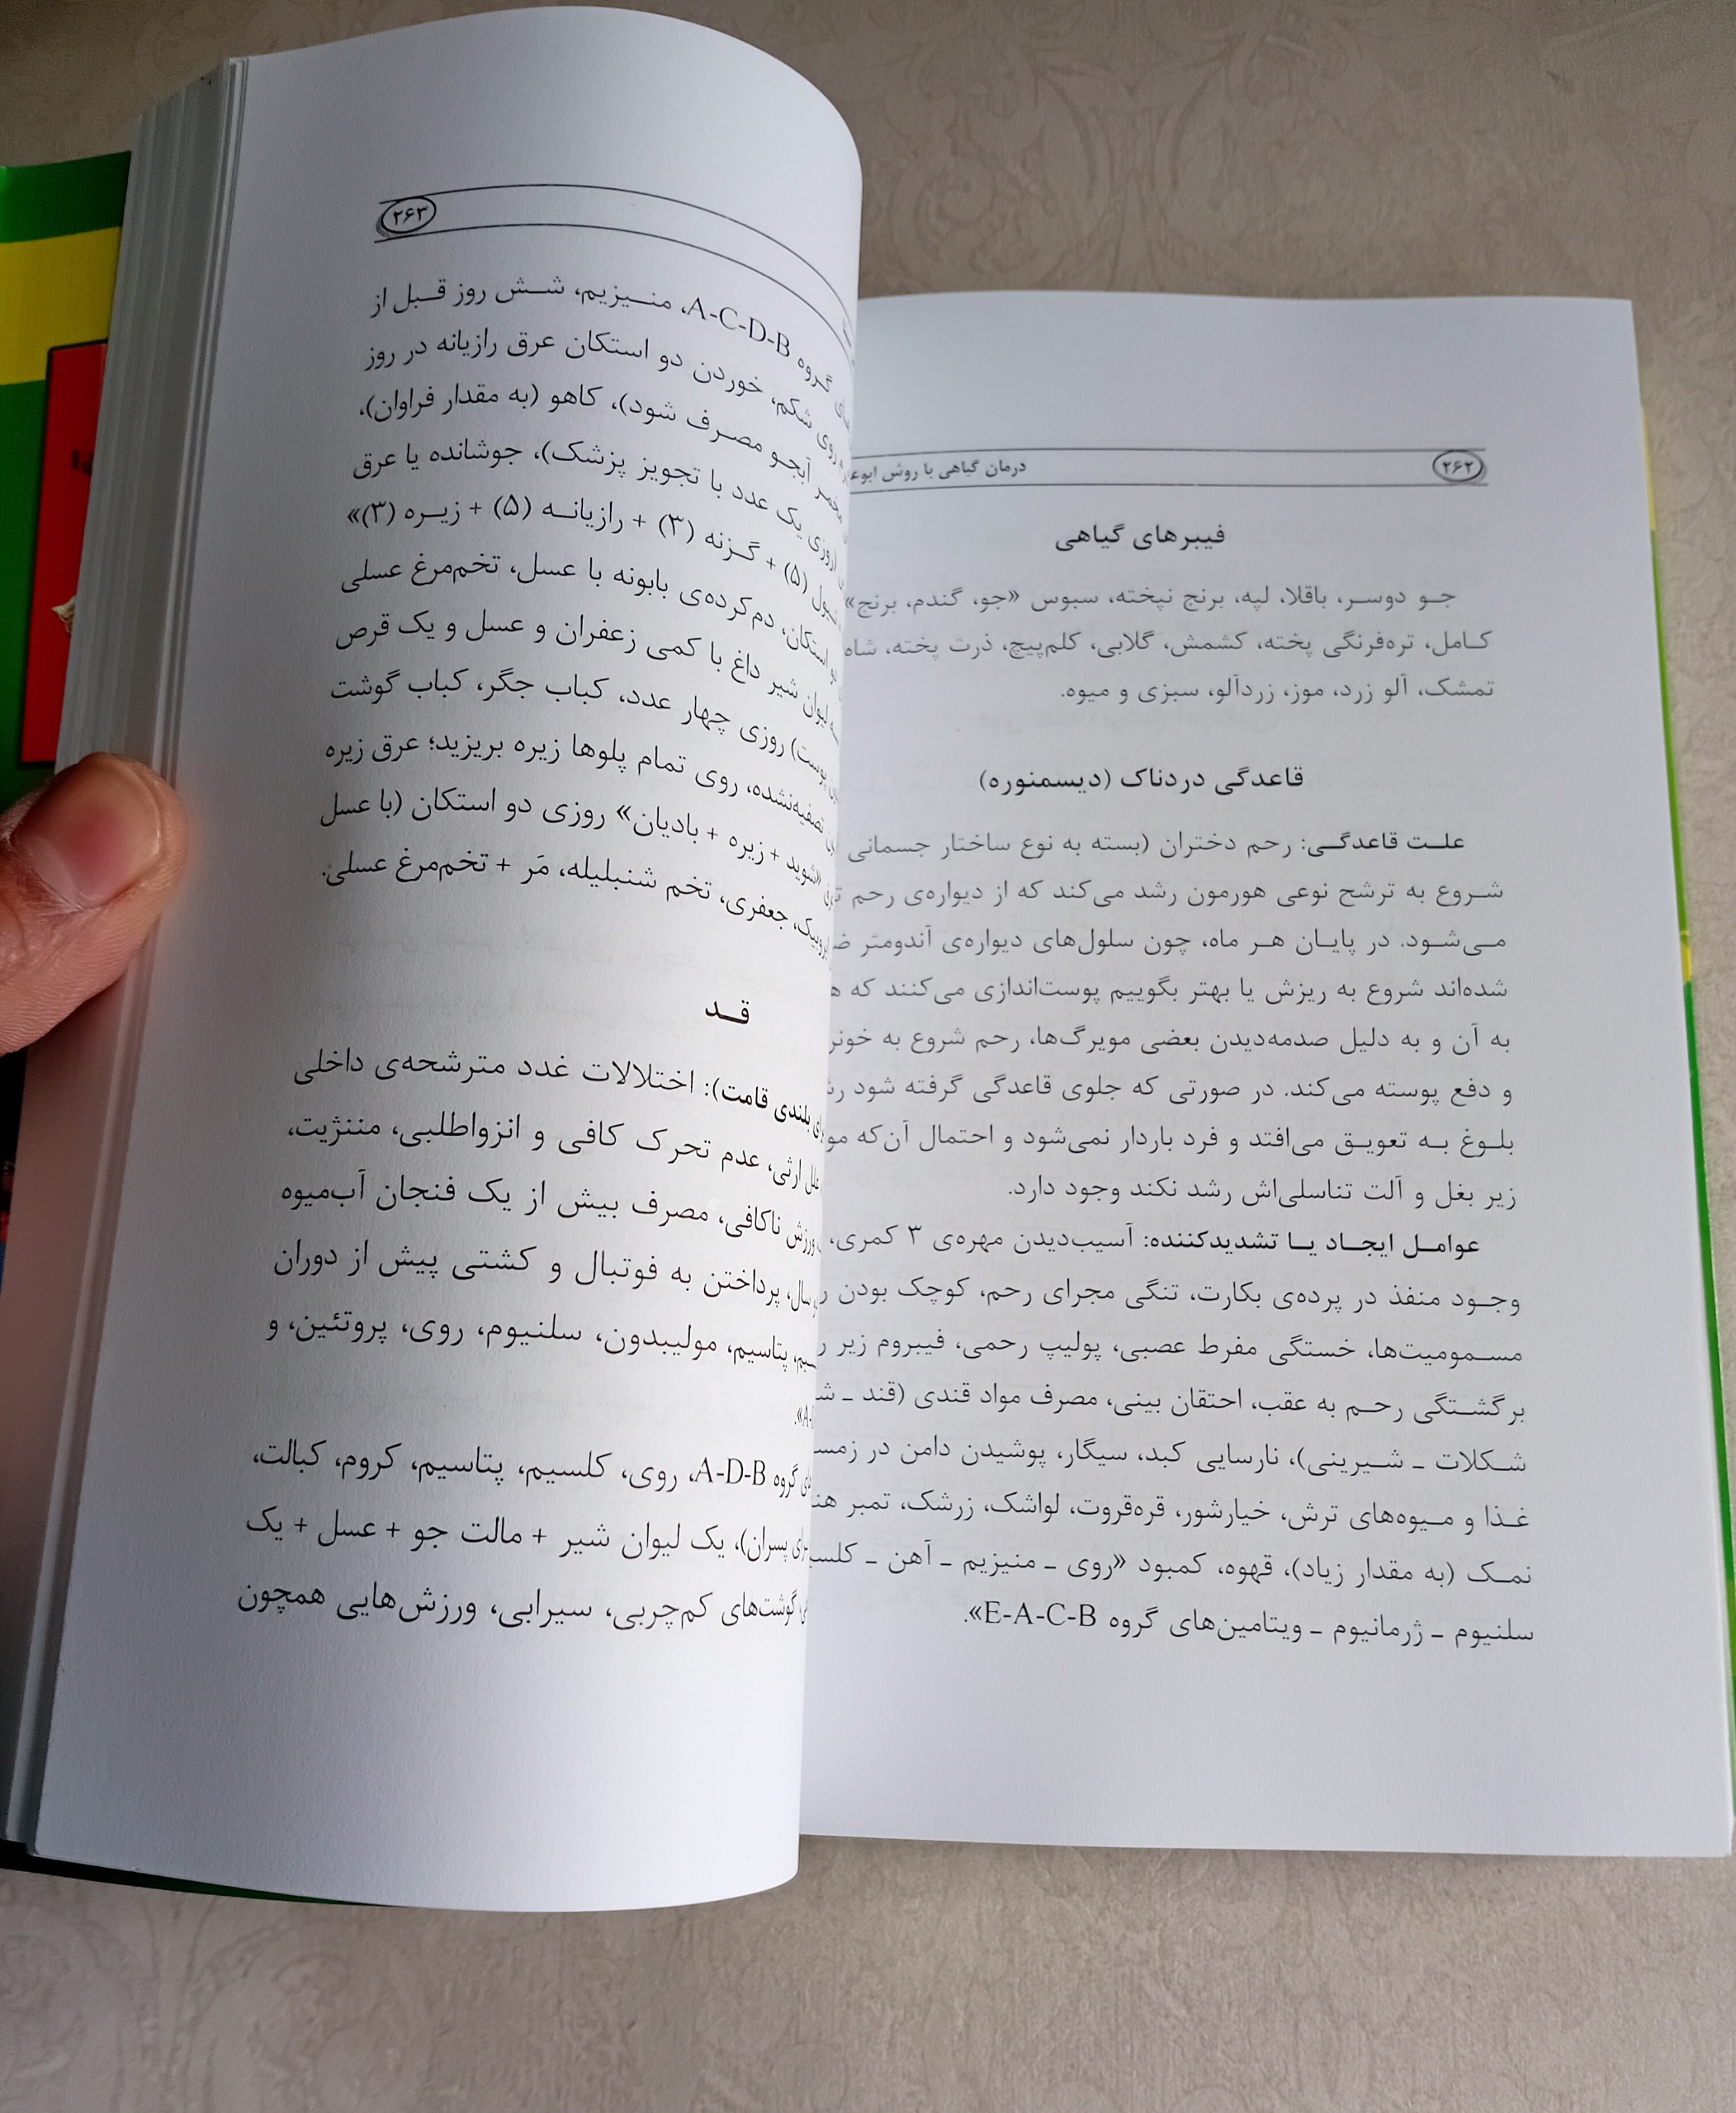 ۲۶۲
درمان گیاهی با روش
فیبرهای گیاهی
جو دوسر، باقلا، لپه، برنج نپخته، سبوس «جو، گندم، برنج»
کامل، تره‌فرنگی پخته، کشمش، گلابی، کلم‌پیچ، ذرت پخته،
تمشک، آلو زرد، موز، زردآلو، سبزی و میوه.
قاعدگی دردناک (دیسمنوره)
علت قاعدگی: رحم دختران (بسته به نوع ساختار جسمانی
شروع به ترشح نوعی هورمون رشد می‌کند که از دیواره‌ی رحم
می‌شود. در پایان هر ماه، چون سلول‌های دیواره‌ی آندومتر
شده‌اند شروع به ریزش یا بهتر بگوییم پوست‌اندازی می‌کنند که
به آن و به دلیل صدمه‌دیدن بعضی مویرگ‌ها، رحم شروع به
و دفع پوسته می‌کند. در صورتی که جلوی قاعدگی گرفته شود
بلوغ به تعویق می‌افتد و فرد باردار نمی‌شود و احتمال آن‌که
زیر بغل و آلت تناسلی‌اش رشد نکند وجود دارد.
عوامل ایجاد یا تشدیدکننده: آسیب‌دیدن مهره‌ی ۳ کمری،
وجود منفذ در پرده‌ی بکارت، تنگی مجرای رحم، کوچک بودن
مسمومیت‌ها، خستگی مفرط عصبی، پولیپ رحمی، فیبروم زیر
برگشتگی رحم به عقب، احتقان بینی، مصرف مواد قندی (قند ـ
شکلات ـ شیرینی)، نارسایی کبد، سیگار، پوشیدن دامن در
غذا و میوه‌های ترش، خیارشور، قره‌قروت، لواشک، زرشک، تمبر
نمک (به مقدار زیاد)، قهوه، کمبود «روی ـ منیزیم ـ آهن ـ
سلنیوم ـ ژرمانیوم ـ ویتامین‌های گروه E-A-C-B».
۲۶۳
گروه A-C-D-B، منیزیم، شش روز قبل از
روی شکم، خوردن دو استکان عرق رازیانه در روز
مخمر آبجو مصرف شود)، کاهو (به مقدار فراوان)،
(روزی یک عدد با تجویز پزشک)، جوشانده یا عرق
(۵) + گزنه (۳) + رازیانه (۵) + زیره (۳)»
استکان، دم‌کرده‌ی بابونه با عسل، تخم‌مرغ عسلی
لیوان شیر داغ با کمی زعفران و عسل و یک قرص
روزی چهار عدد، کباب جگر، کباب گوشت
تصفیه‌نشده، روی تمام پلوها زیره بریزید؛ عرق زیره
«شوید + زیره + بادیان» روزی دو استکان (با عسل
جعفری، تخم شنبلیله، مَر + تخم‌مرغ عسلی.
قد
بلندی قامت): اختلالات غدد مترشحه‌ی داخلی
علل ارثی، عدم تحرک کافی و انزواطلبی، مننژیت،
ورزش ناکافی، مصرف بیش از یک فنجان آب‌میوه
سال، پرداختن به فوتبال و کشتی پیش از دوران
پتاسیم، مولیبدون، سلنیوم، روی، پروتئین، و
گروه A-D-B، روی، کلسیم، پتاسیم، کروم، کبالت،
پسران)، یک لیوان شیر + مالت جو + عسل + یک
گوشت‌های کم‌چربی، سیرابی، ورزش‌هایی همچون